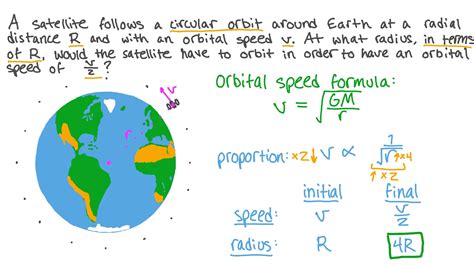 A satellite follows a circular orbit around Earth at a radial
distance R and with an orbital speed v. At what radius, in terms
of R, would the satellite have to orbit in order to have an orbital
speed of v/2?
v
r
Orbital speed formula:
v = √(GM/r)
proportion: ×2↓ v ∝ 1/√r ↑×4
↑×2
initial final
speed: v v/2
radius: R 4R